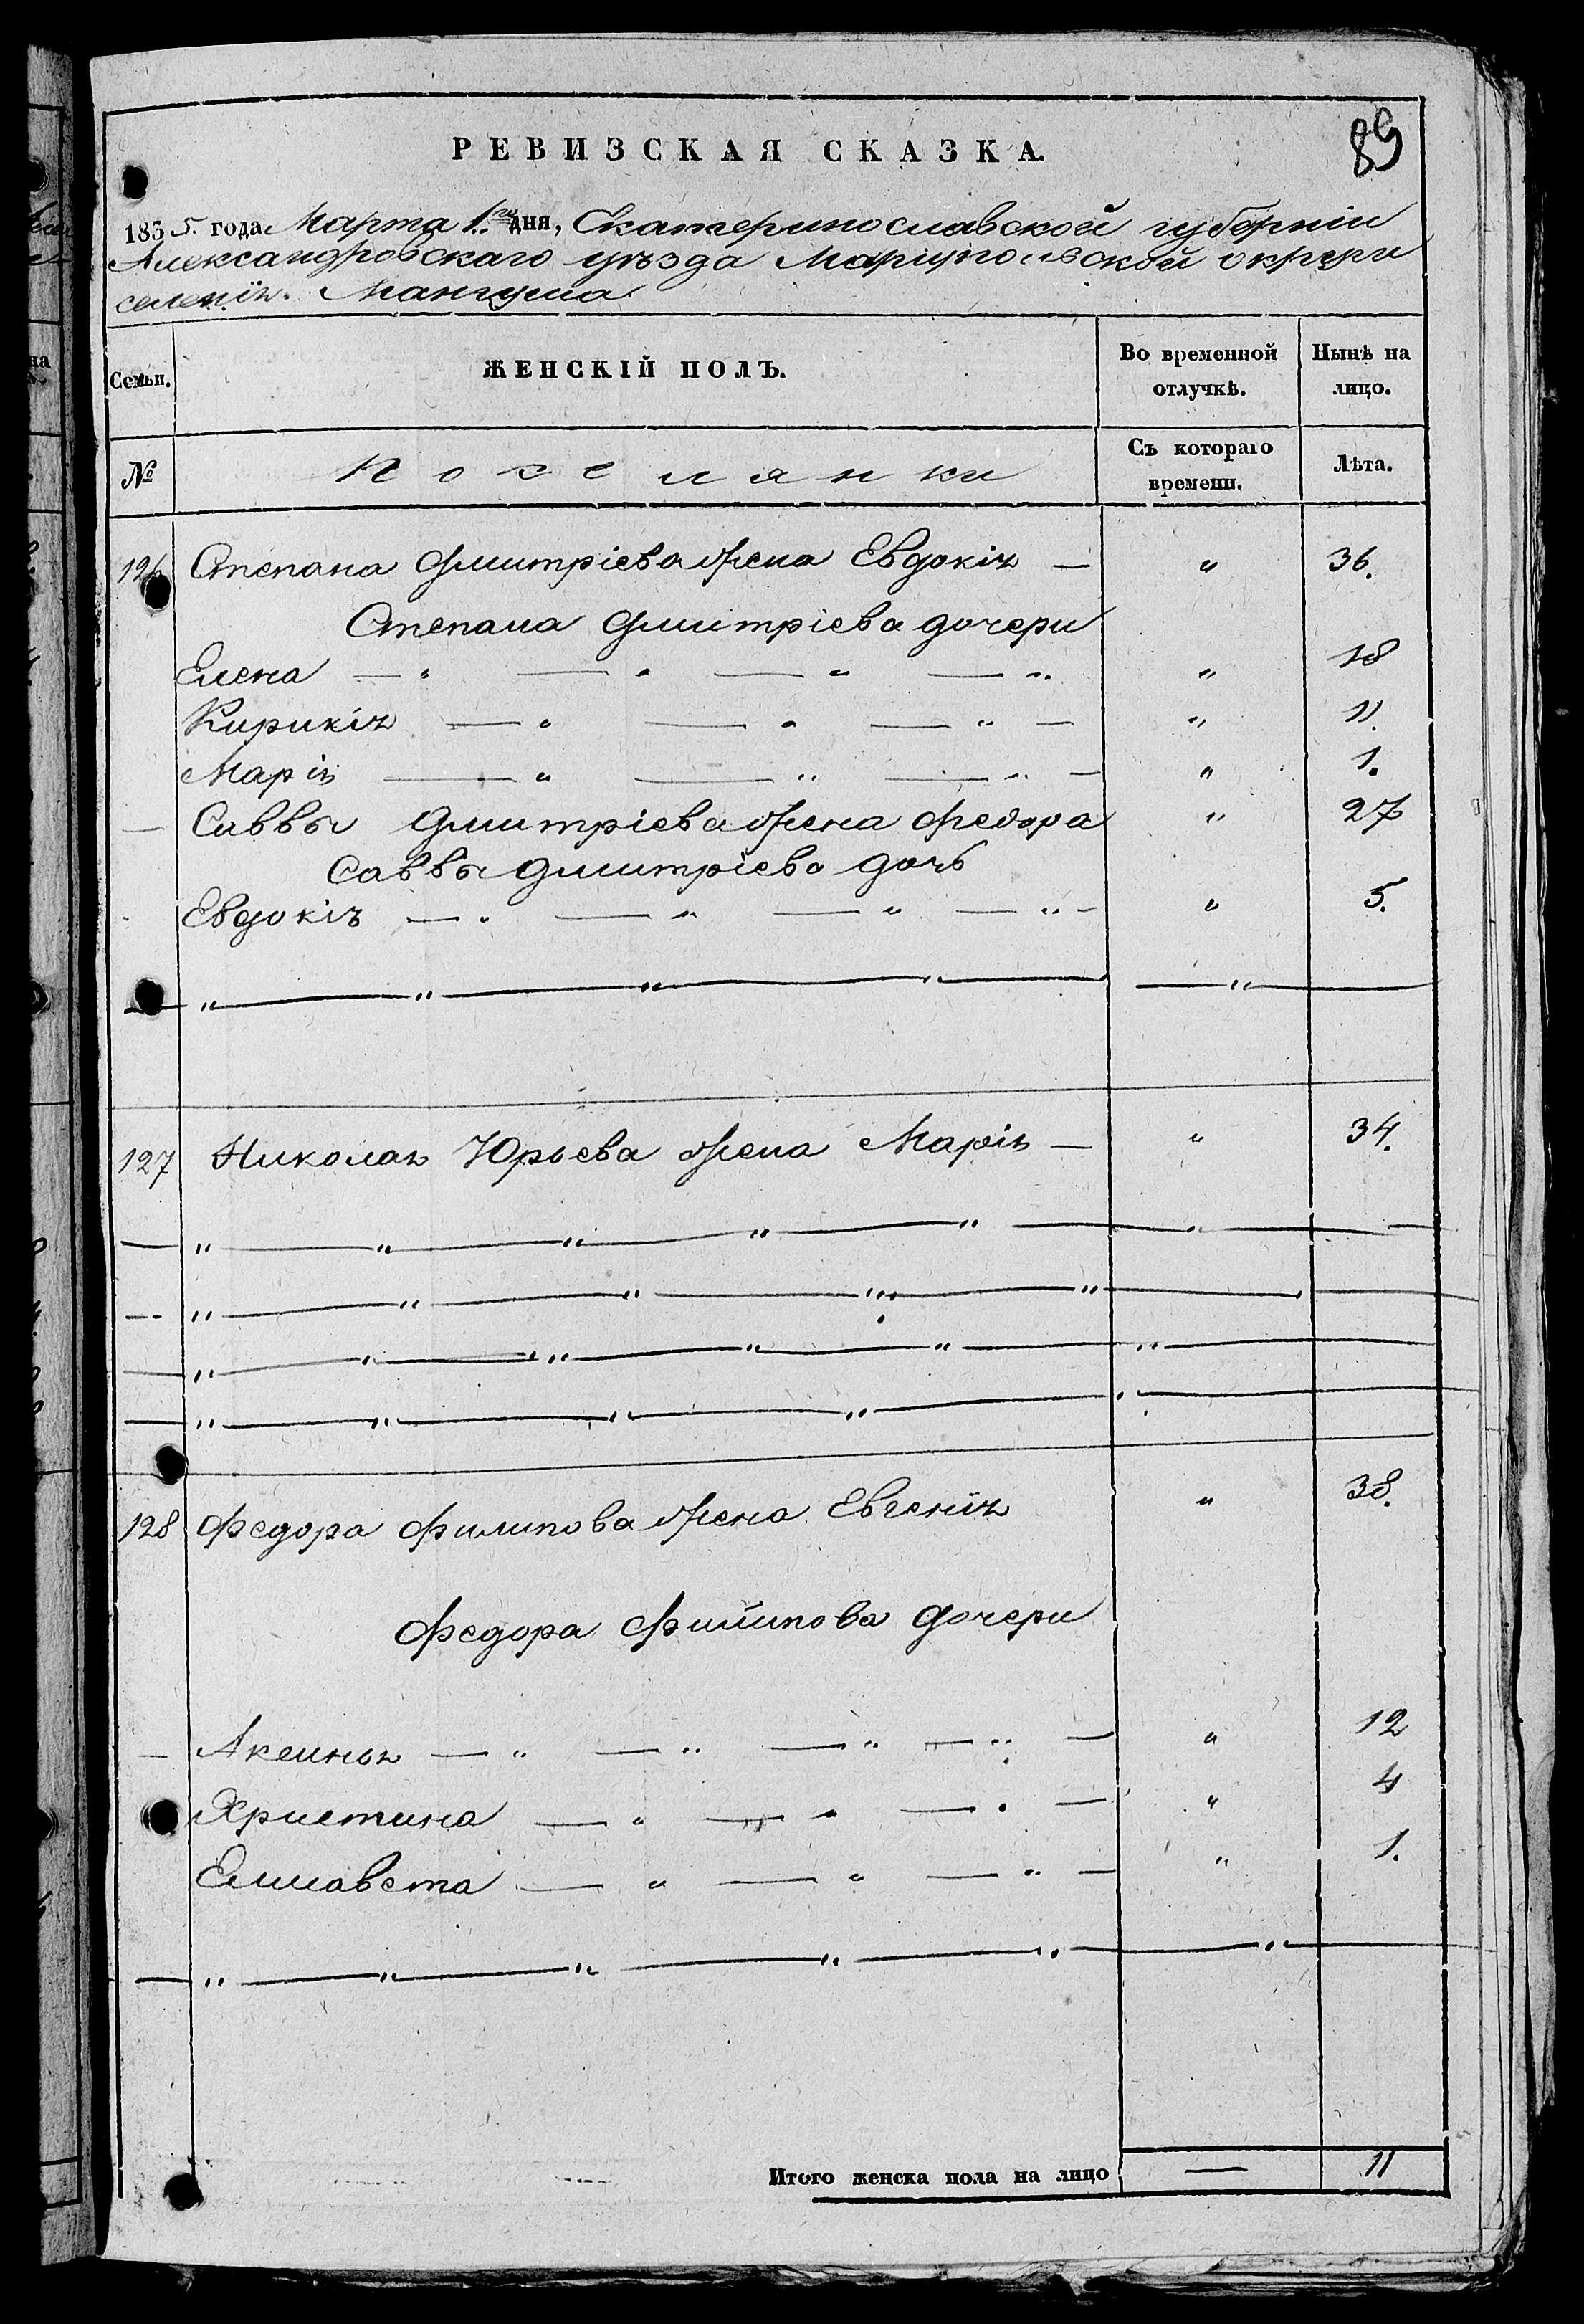 89
РЕВИЗСКАЯ СКАЗКА.
1835 года Марта 1го дня, Екатеринославской губерніи
Александровскаго уѣзда Маріупольской округи
селенія Мангуша
Семьи.
ЖЕНСКІЙ ПОЛЪ.
Во временной отлучкѣ.
Нынѣ на лицо.
№
Поселянки
Съ котораго времени.
Лѣта.
126 Степана Дмитріева жена Евдокія — " 36.
Степана Дмитріева дочери
Елена — " — " — " — " " 18
Кирикія — " — " — " — " 11.
Марія — " — " — " — " 1.
— Саввы Дмитріева жена Федора " 27
Саввы Дмитріева дочь
Евдокія — " — " — " — " — " 5.
— " — " — " — " — — " —
127 Николая Юрьева жена Марія — " 34.
— " — " — " — " — " — " —
— " — " — " — " — " —
— " — " — " — " — " — " —
— " — " — " — " — " —
128 Федора Филипова жена Евгенія " 38.
Федора Филипова дочери
— Аксинья — " — " — " — " — " 12
Христина — " — " — " — " 4
Елисавета — " — " — " — " 1.
— " — " — " — " — " — " —
Итого женска пола на лицо — 11